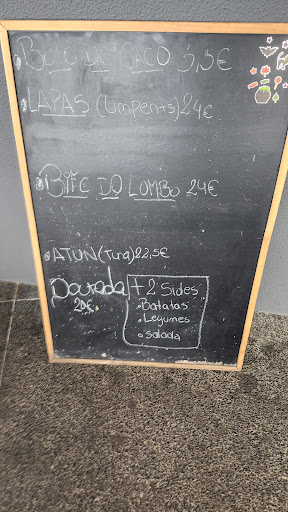 BOLO DO CACO 3,5€
LAPAS (Limpents) 24€
BIFE DO LOMBO 24€
ATUN (Tuna) 22,5€
Dourada + 2 Sides
20€
Batatas
Legumes
Salada